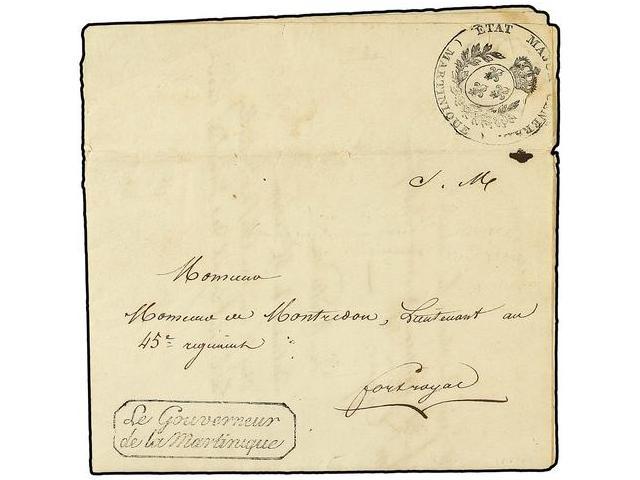 ETAT MAJOR GÉNÉRAL ( MARTINIQUE )
S. M
Monsieur
Monsieur de Montredon, Lieutenant au
45e regiment
fort royal
Le Gouverneur
de la Martinique